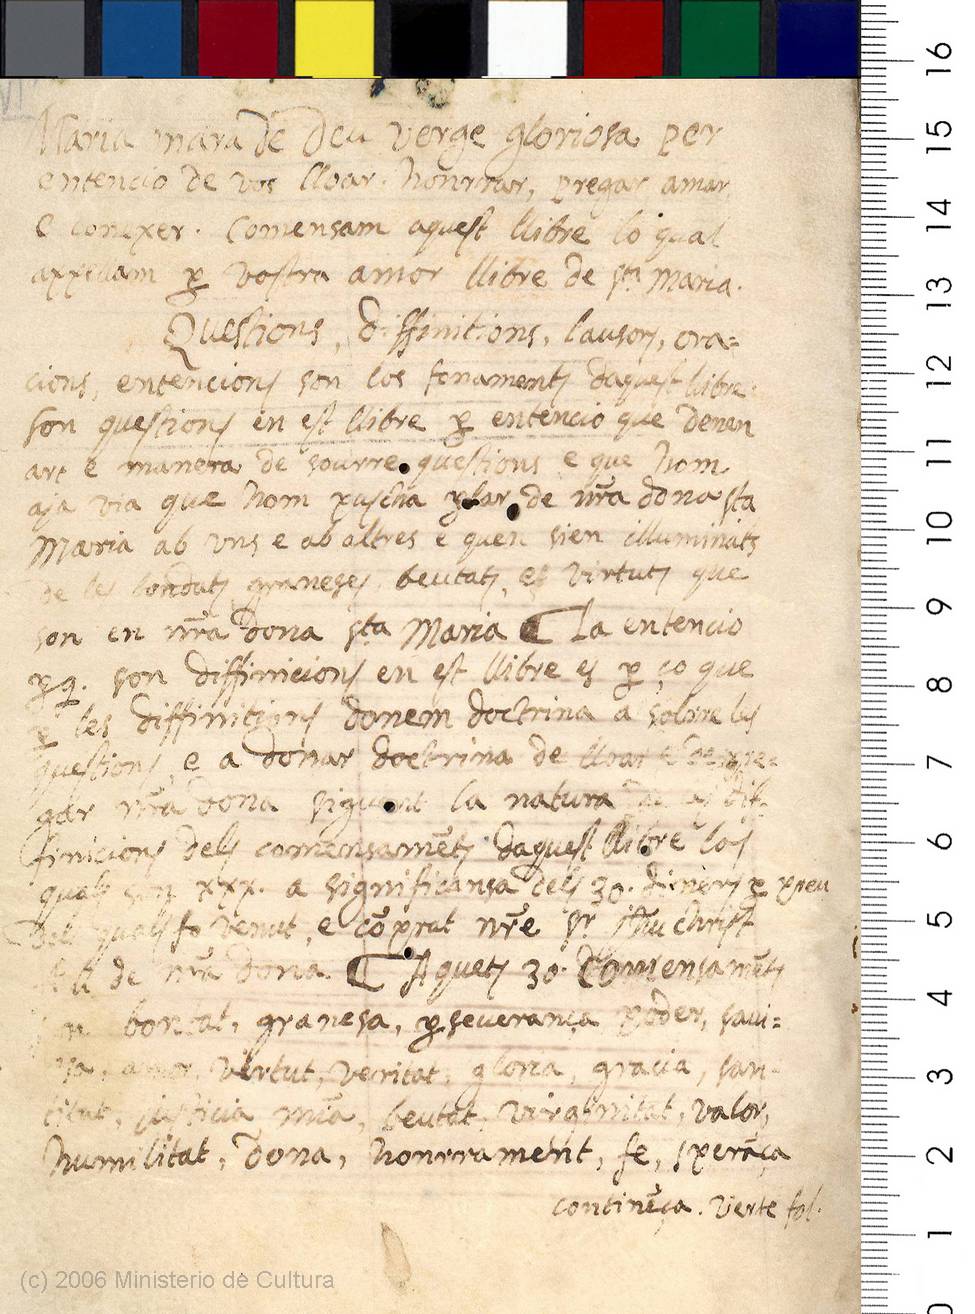 Maria mara de Deu verge gloriosa per
entencio de vos lloar. honrrar, pregar, amar
e conexer. Comensam aquest llibre lo qual
appellam ꝑ vostra amor llibre de sta Maria.
Questions, diffinitions, lausors, ora=
cions, entencions son los fonaments daquest llibre.
son questions en est llibre ꝑ entencio que donen
art e manera de sourre questions e que hom
aja via que hom puscha ꝑlar de nr̃a dona sta
Maria ab uns e ab altres e quen sien illuminats
de les bondats graneses, beutats, es virtuts que
son en nr̃a dona sta Maria ¶ La entencio
ꝑ q. son diffinicions en est llibre es ꝑ ço que
ꝑ les diffinitions donem doctrina a solvre les
questions, e a donar doctrina de lloar e de pre=
gar nr̃a dona siguent la natura de les dif
finicions dels comensamẽts daquest llibre los
quals son xxx. a significansa dels 30. diners ꝑ
dels quals fo venut, e cõprat nr̃e Sr Jhu Christ
fill de nr̃a dona. ¶ Aquets 30. Comensamẽts
son bontat, granesa, ꝑseverança poder, savi=
esa, amor, vertut, veritat, gloria, gracia, san-
citat, justicia, mĩa, beutat, virginitat, valor,
humilitat, dona, honrrament, fe, sperãça
continẽça. Verte fol.
(c) 2006 Ministerio de Cultura
16
15
14
13
12
11
10
9
8
7
6
5
4
3
2
1
0